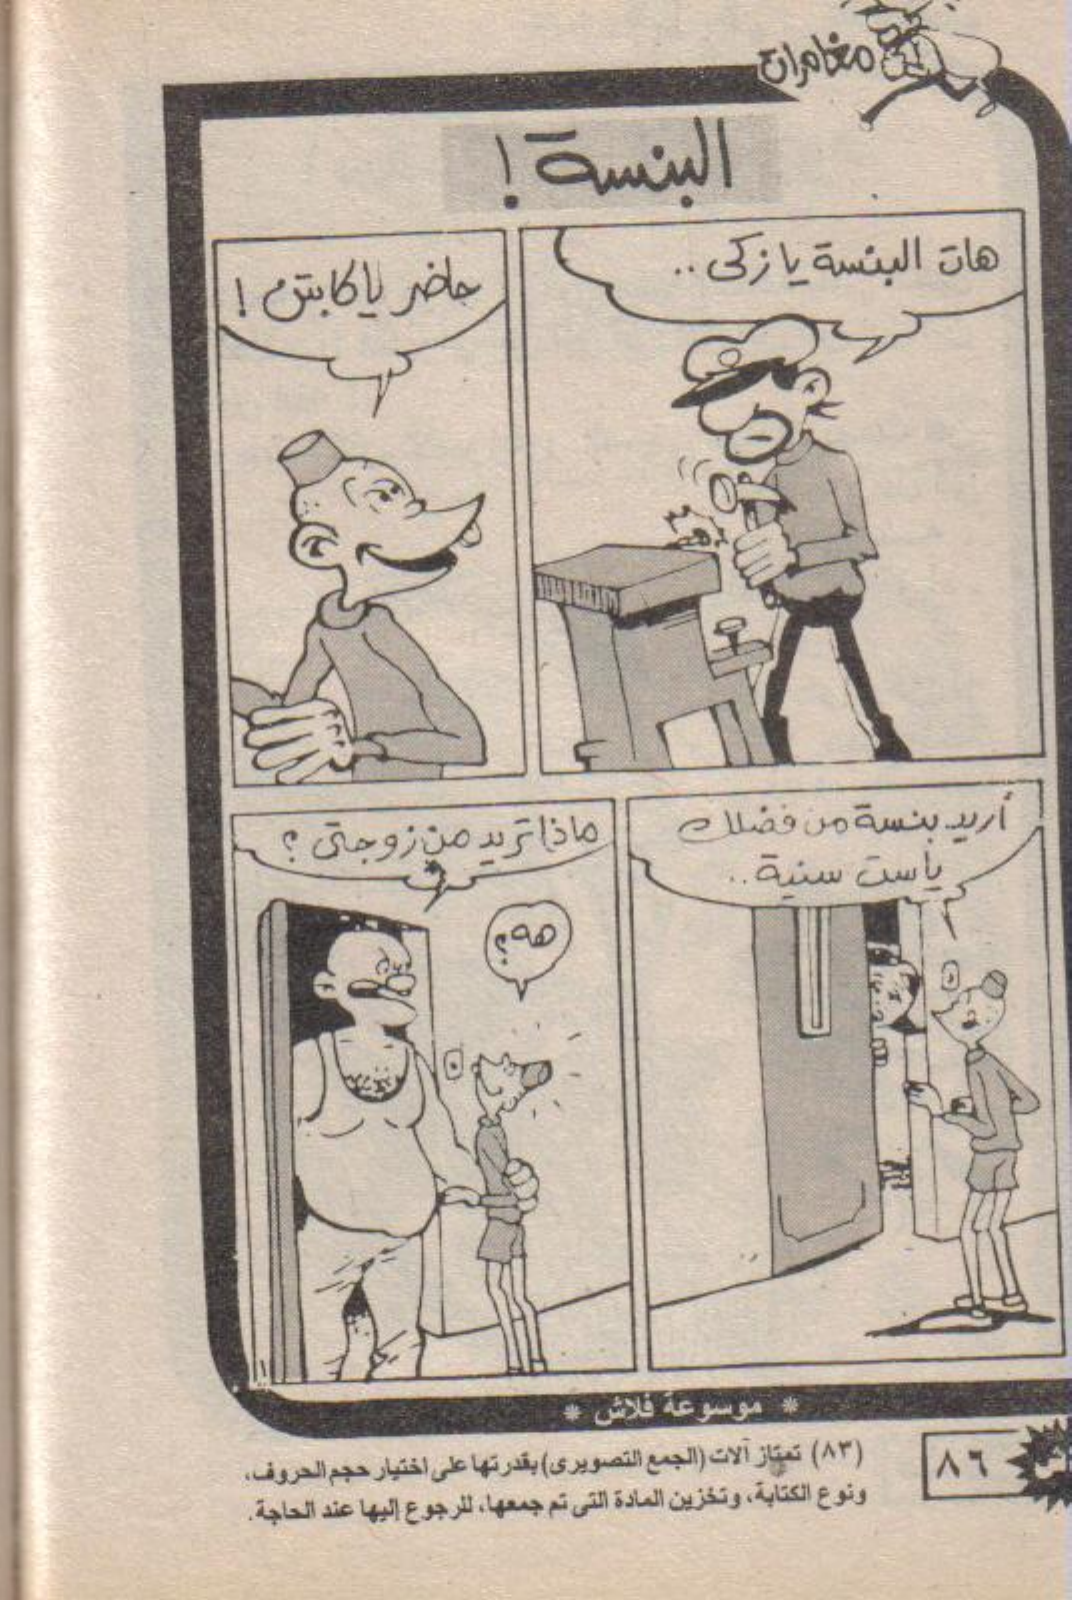 مغامرات
البنسة !
هات البنسة يا زكى ..
حاضر يا كابتن !
أريد بنسة من فضلك
يا ست سنية ..
ماذا تريد من زوجتى ؟
هه ؟
* موسوعة فلاش *
(٨٣) تمتاز آلات (الجمع التصويرى) بقدرتها على اختيار حجم الحروف،
ونوع الكتابة، وتخزين المادة التى تم جمعها، للرجوع إليها عند الحاجة.
٨٦